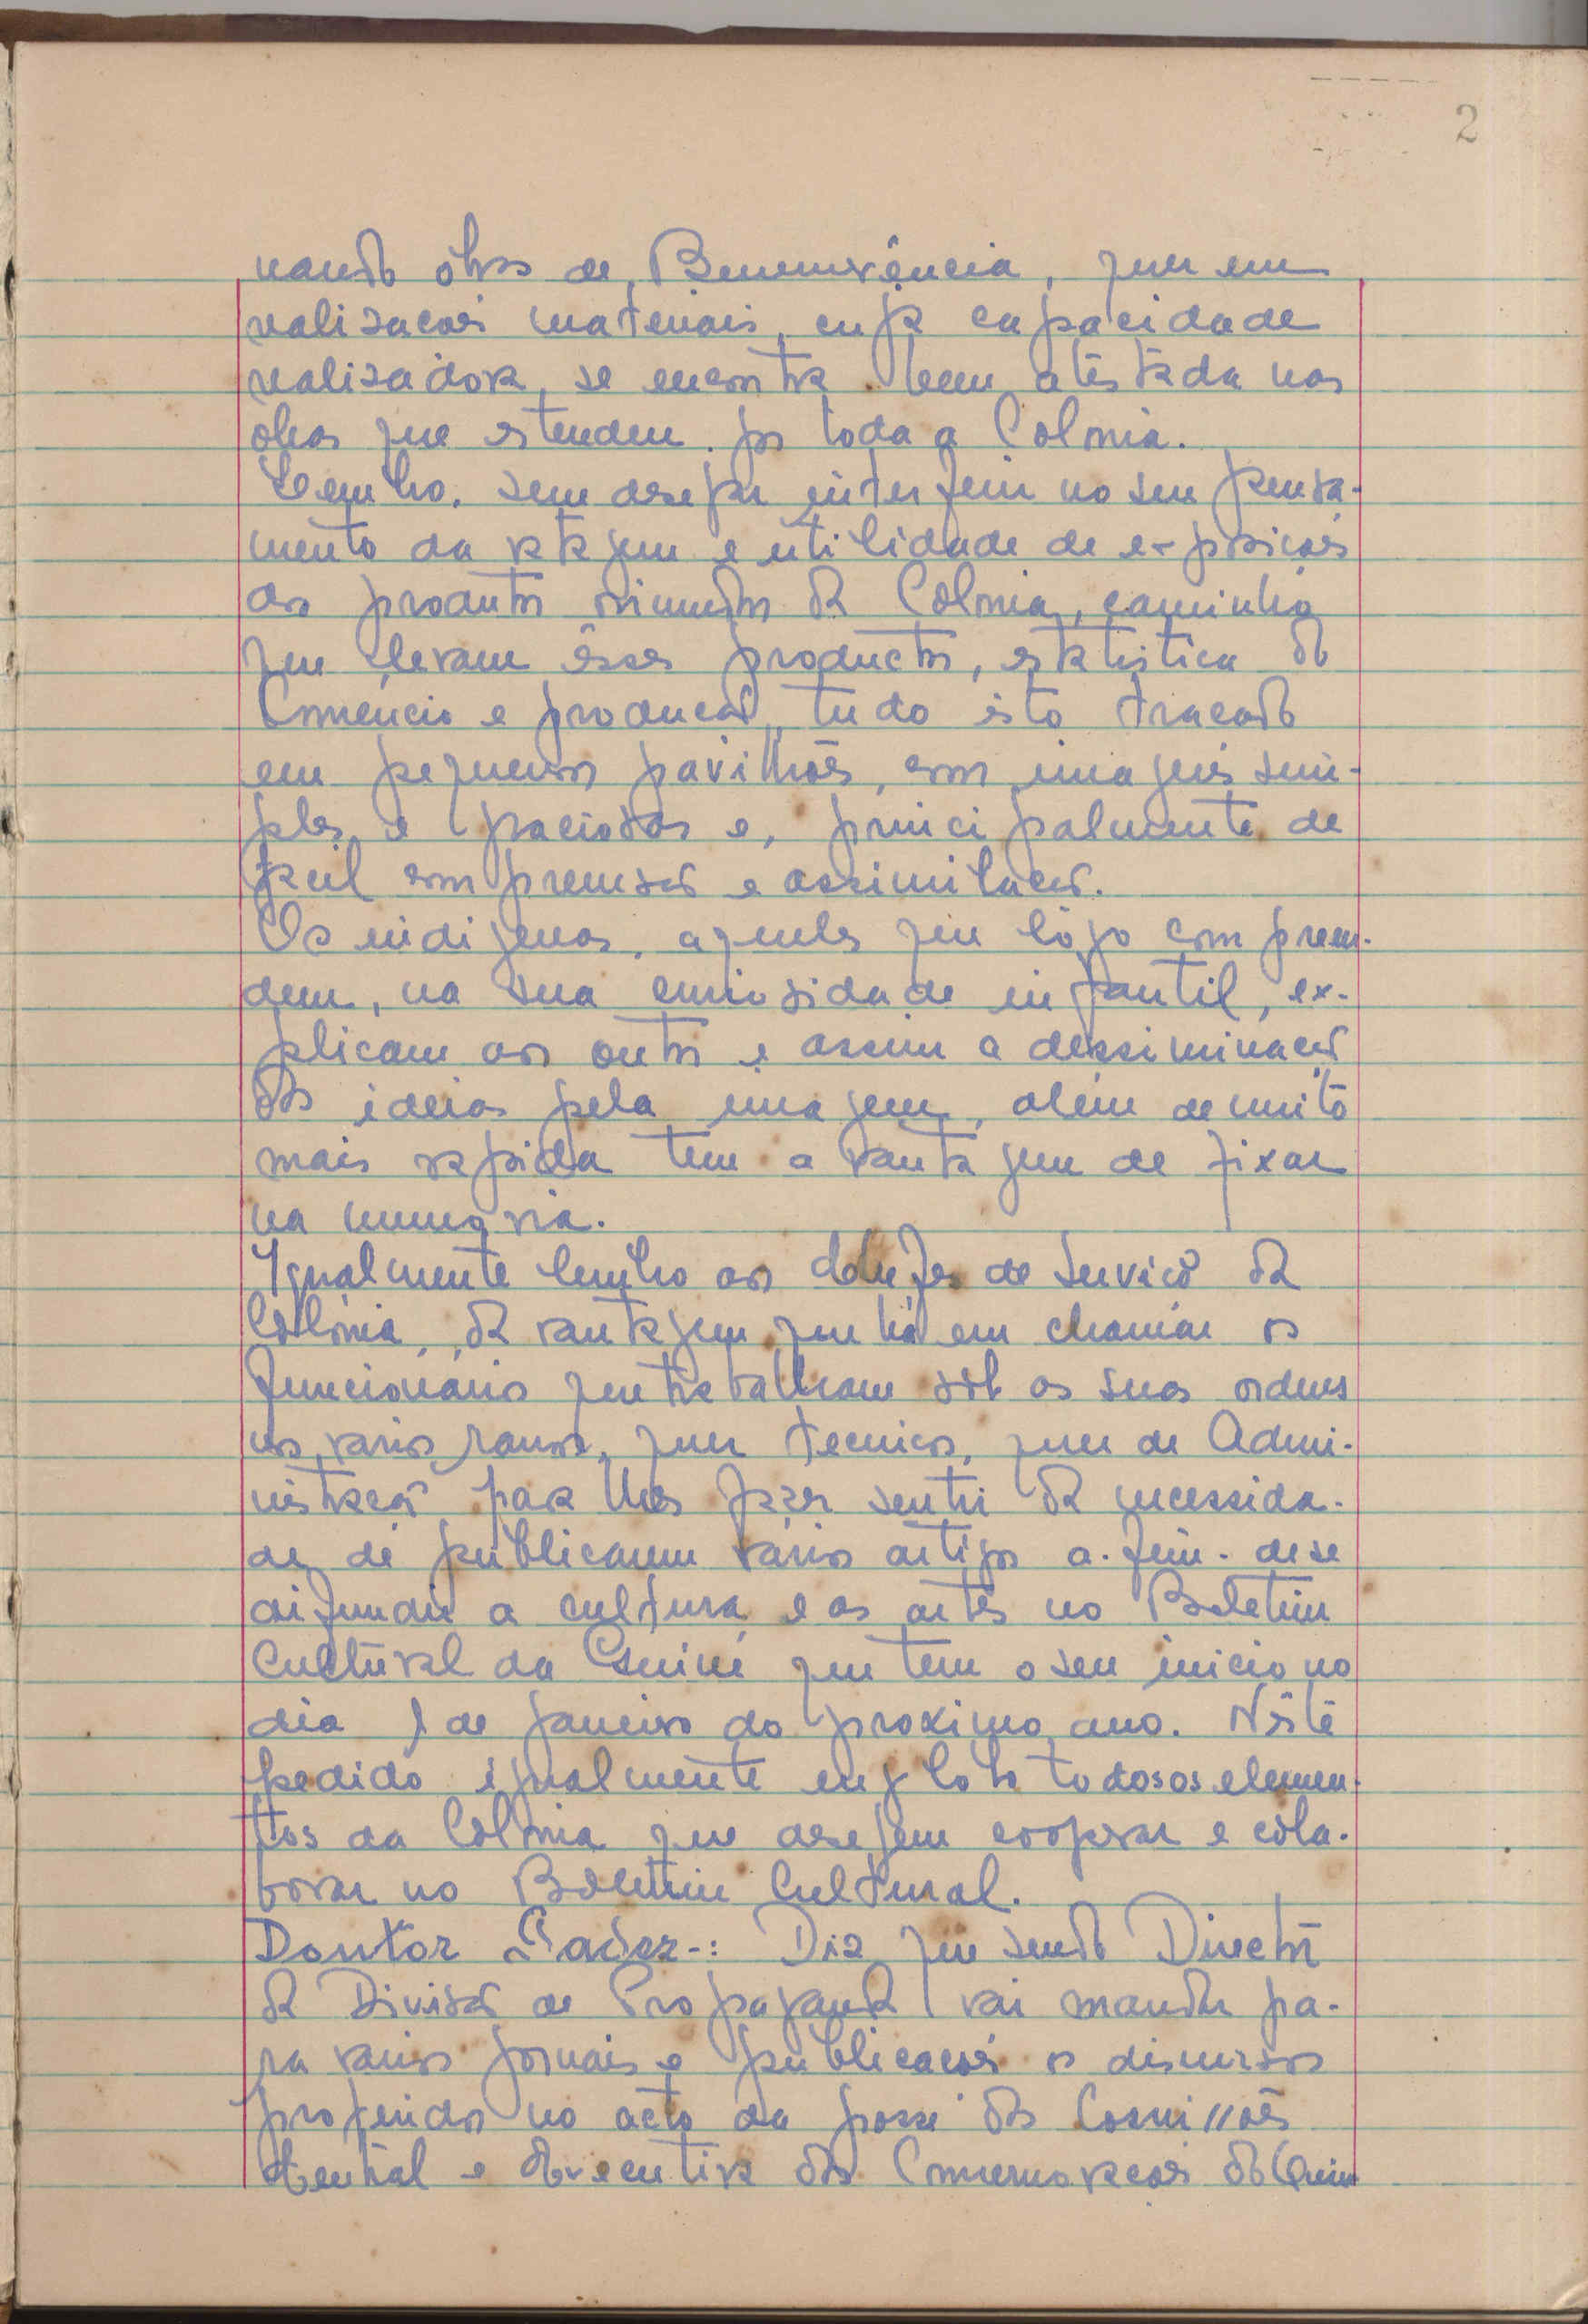 2
nando óbras de Benemerência, quer em
realisacões materiais, cuja capacidade
realisadora, se encontra bem atestada nas
obras que estendem por toda a Colonia.
Lembro, sem desejar interferir no seu pensa-
mento da vantagem e utilidade de exposicões
dos produtos oriundos da Colonia, caminho
que levam êsses productos, estatistica do
Comércio e producão, tudo isto tracado
em pequenos pavilhões, com imagens sim-
ples e graciosas e, principalmente de
facil compreensão e assimilacão.
Os indigenas, aqueles que lógo compreen-
dem, na sua curiosidade infantil, ex-
plicam aos outros e assim a dessiminacão
das ideias pela imagem, além de muito
mais rapida tem a vantagem de fixar
na memoria.
Igualmente lembro aos Chefes de Servico da
Colónia, da vantagem que há em chamar os
funcionarios que trabalham sob as suas ordens
nos varios ramos, quer tecnicos, quer de Admi-
nistracão para lhes fazer sentir da necessida-
de de publicarem varios artigos a-fim-de se
difundir a cultura e as artes no Boletim
Cultural da Guiné que tem o seu inicio no
dia 1 de Janeiro do proximo ano. Nêste
pedido igualmente englobo todos os elemen-
tos da Colonia que desejem cooperar e cola-
borar no Boletim Cultural.
Doutor -: Diz que sendo Director
da Divisão de Propaganda vai mandar pa-
ra varios jornais e publicacões os discursos
proferidos no acto da posse das Comissões
Central e Executiva das Comemoracões do Quin